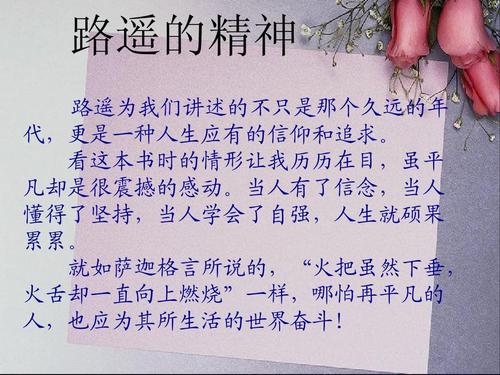 路遥的精神
路遥为我们讲述的不只是那个久远的年
代，更是一种人生应有的信仰和追求。
看这本书时的情形让我历历在目，虽平
凡却是很震撼的感动。当人有了信念，当人
懂得了坚持，当人学会了自强，人生就硕果
累累。
就如萨迦格言所说的，“火把虽然下垂，
火舌却一直向上燃烧”一样，哪怕再平凡的
人，也应为其所生活的世界奋斗！